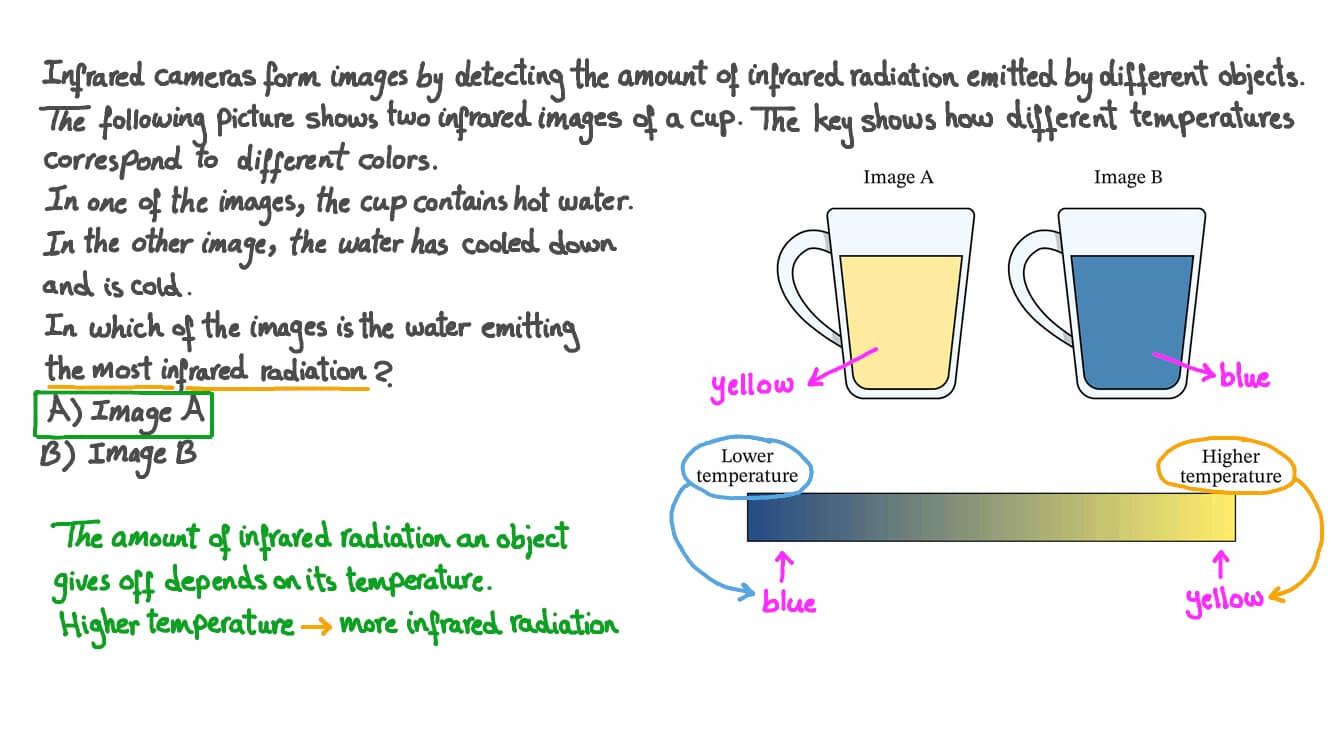 Infrared cameras form images by detecting the amount of infrared radiation emitted by different objects.
The following Picture shows two infrared images of a cup. The key shows how different temperatures
correspond to different colors.
In one of the images, the cup contains hot water.
In the other image, the water has cooled down
and is cold.
In which of the images is the water emitting
the most infrared radiation?
A) Image A
B) Image B
The amount of infrared radiation an object
gives off depends on its temperature.
Higher temperature → more infrared radiation
Image A
Image B
yellow
blue
Lower
temperature
Higher
temperature
blue
yellow